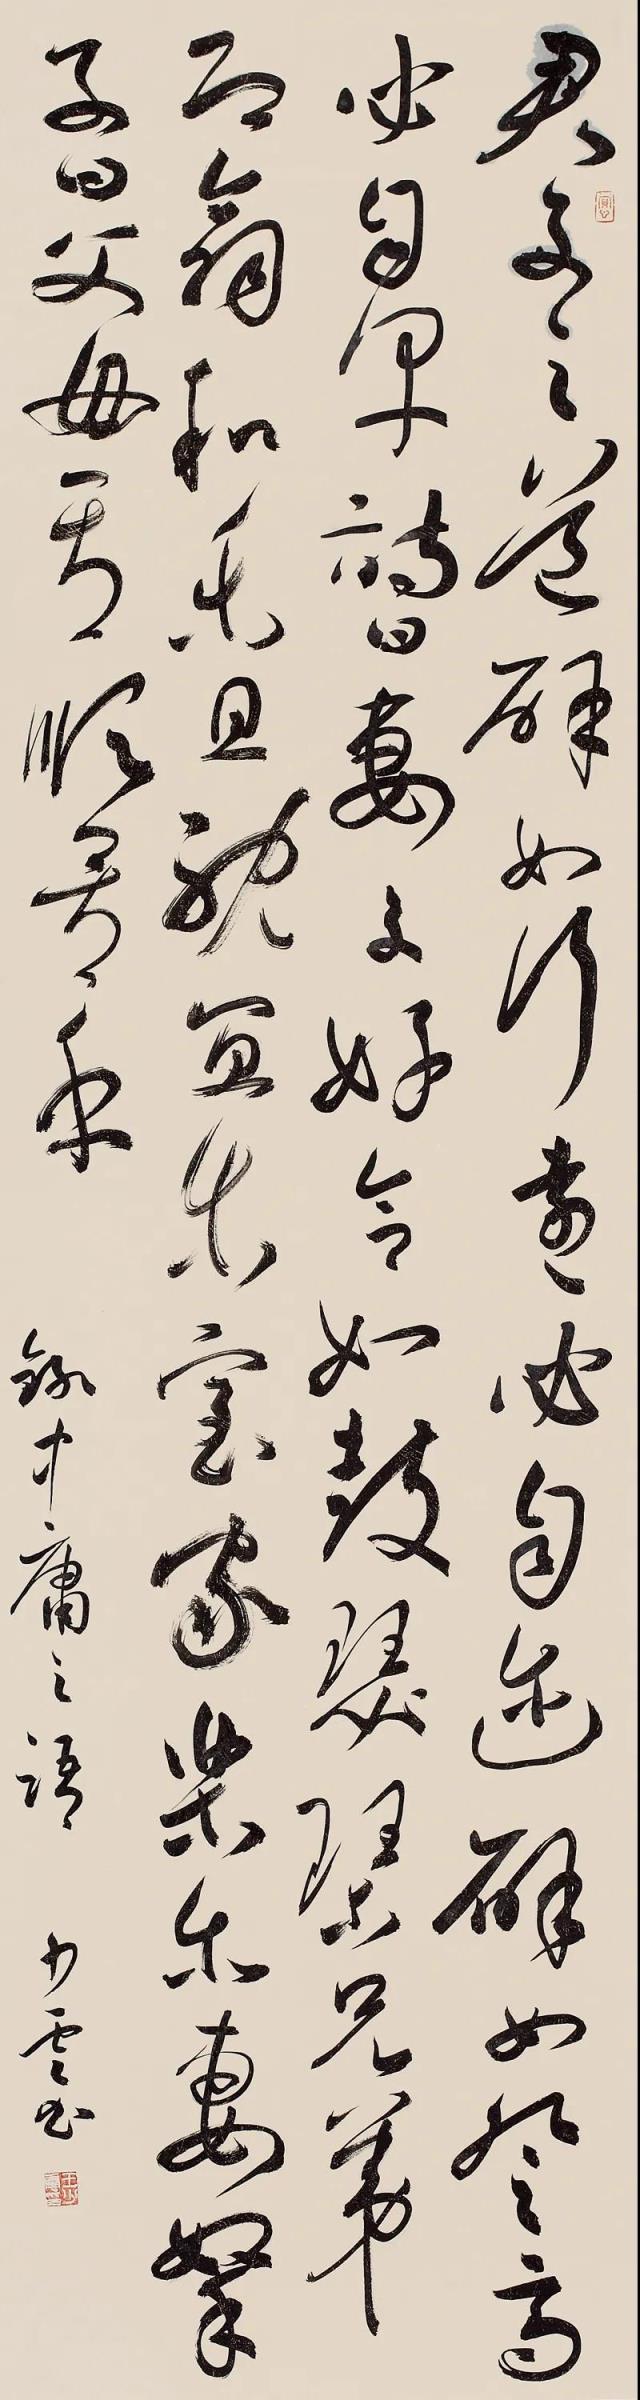 君子之道辟如行遠必自迩辟如登高
必自卑詩曰妻子好合如鼓瑟琴兄弟
既翕和樂且耽宜尔室家樂尔妻孥
子曰父母其順矣乎
録中庸之語
少雲书